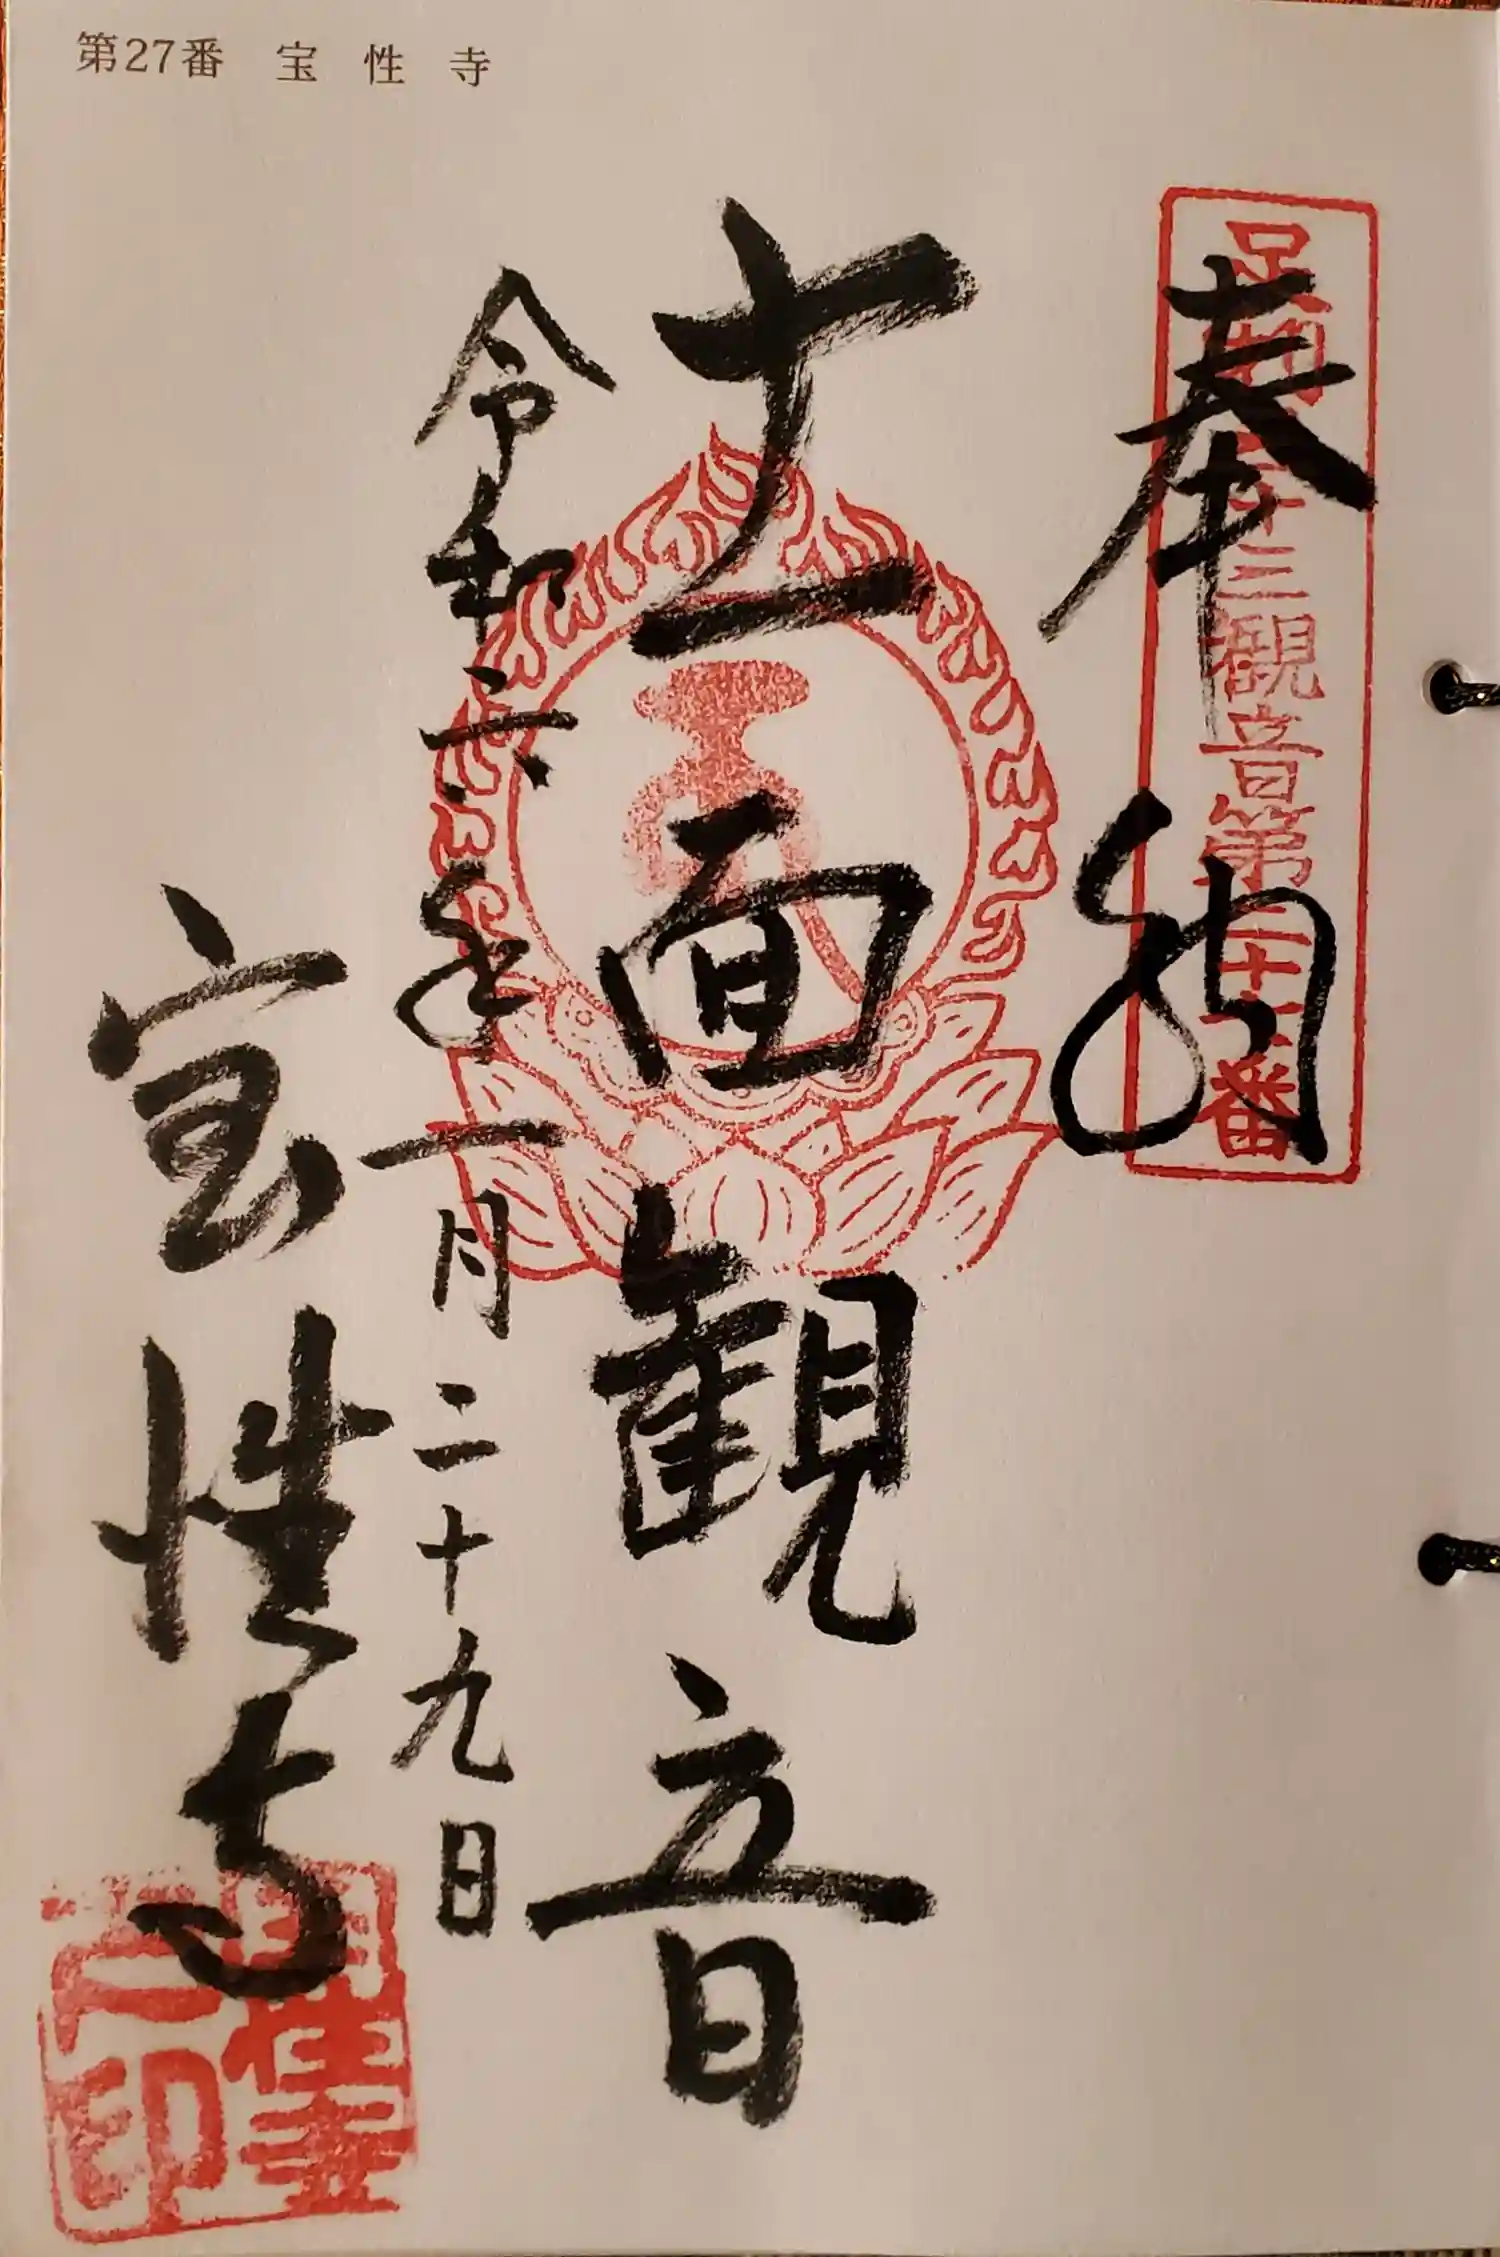 第27番 宝性寺
奉納
足利三十三観音第二十七番
十一面観音
令和六年一月二十九日
宝性寺